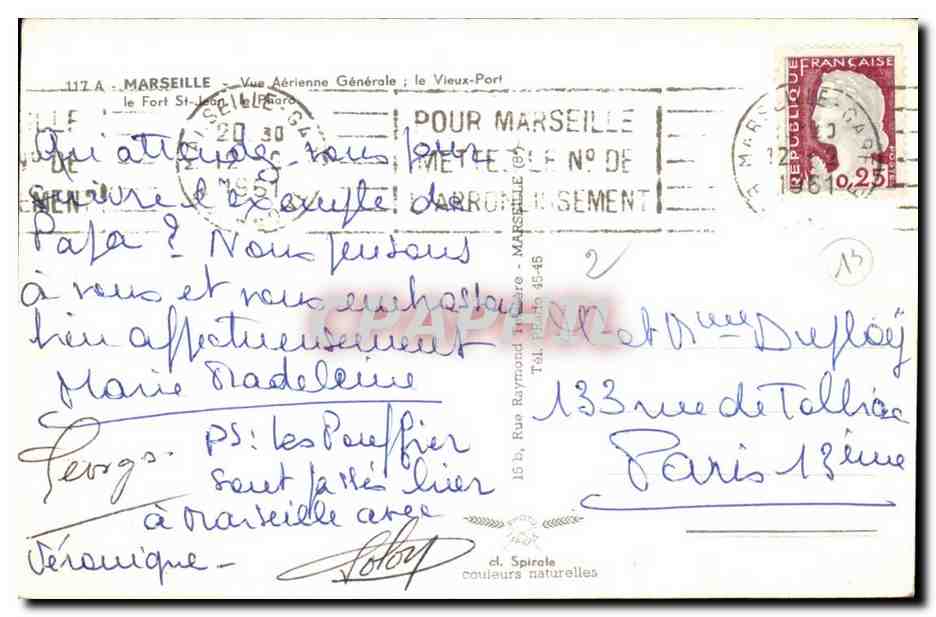 117 A - MARSEILLE - Vue Aérienne Générale ; le Vieux-Port
le Fort St-Jean, le Pharo
MARSEILLE-GARE
20 30
12
1961
POUR MARSEILLE
METTEZ LE No DE
L'ARRONDISSEMENT
REPUBLIQUE FRANÇAISE
0,25
MARSEILLE-GARE
12
1961
Qu'attendez-vous pour
suivre l'exemple de
Papa ? Nous pensons
à vous et vous embrassons
bien affectueusement
Marie Madeleine
Georges.
PS : Les Pouffier
sont passés hier
à Marseille avec
Véronique -
CPAPHIL
15 b, Rue Raymond - MARSEILLE (8e)
Tél. 45-45
2
13
M et Mme Dufloÿ
133 rue de Tolbiac
Paris 13ème
cl. Spirale
couleurs naturelles